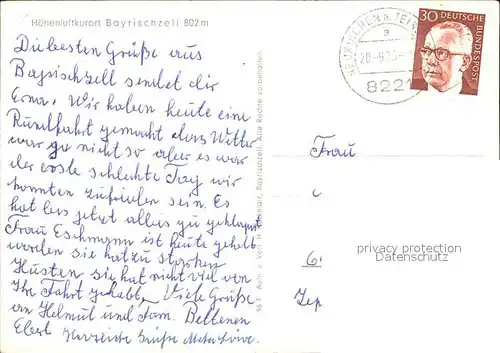 Höhenluftkurort Bayrischzell 802 m
Die besten Grüße aus
Bayrischzell sendet dir
Erna. Wir haben heute eine
Rundfahrt gemacht das Wetter
war so nicht so aber es war
der erste schlechte Tag wir
konnten zufrieden sein. Es
hat bis jetzt alles zu geklappt
Frau Eschmann ist heute geholt
worden sie hat zu starken
Husten sie hat nicht viel von
Ihr Fahrt gehabt. Viele Grüße
an Helmut und Fam.
Herzliche Grüße
Alle Rechte vorbehalten
30 DEUTSCHE
BUNDESPOST
a
8221
Frau
6
privacy protection
Datenschutz